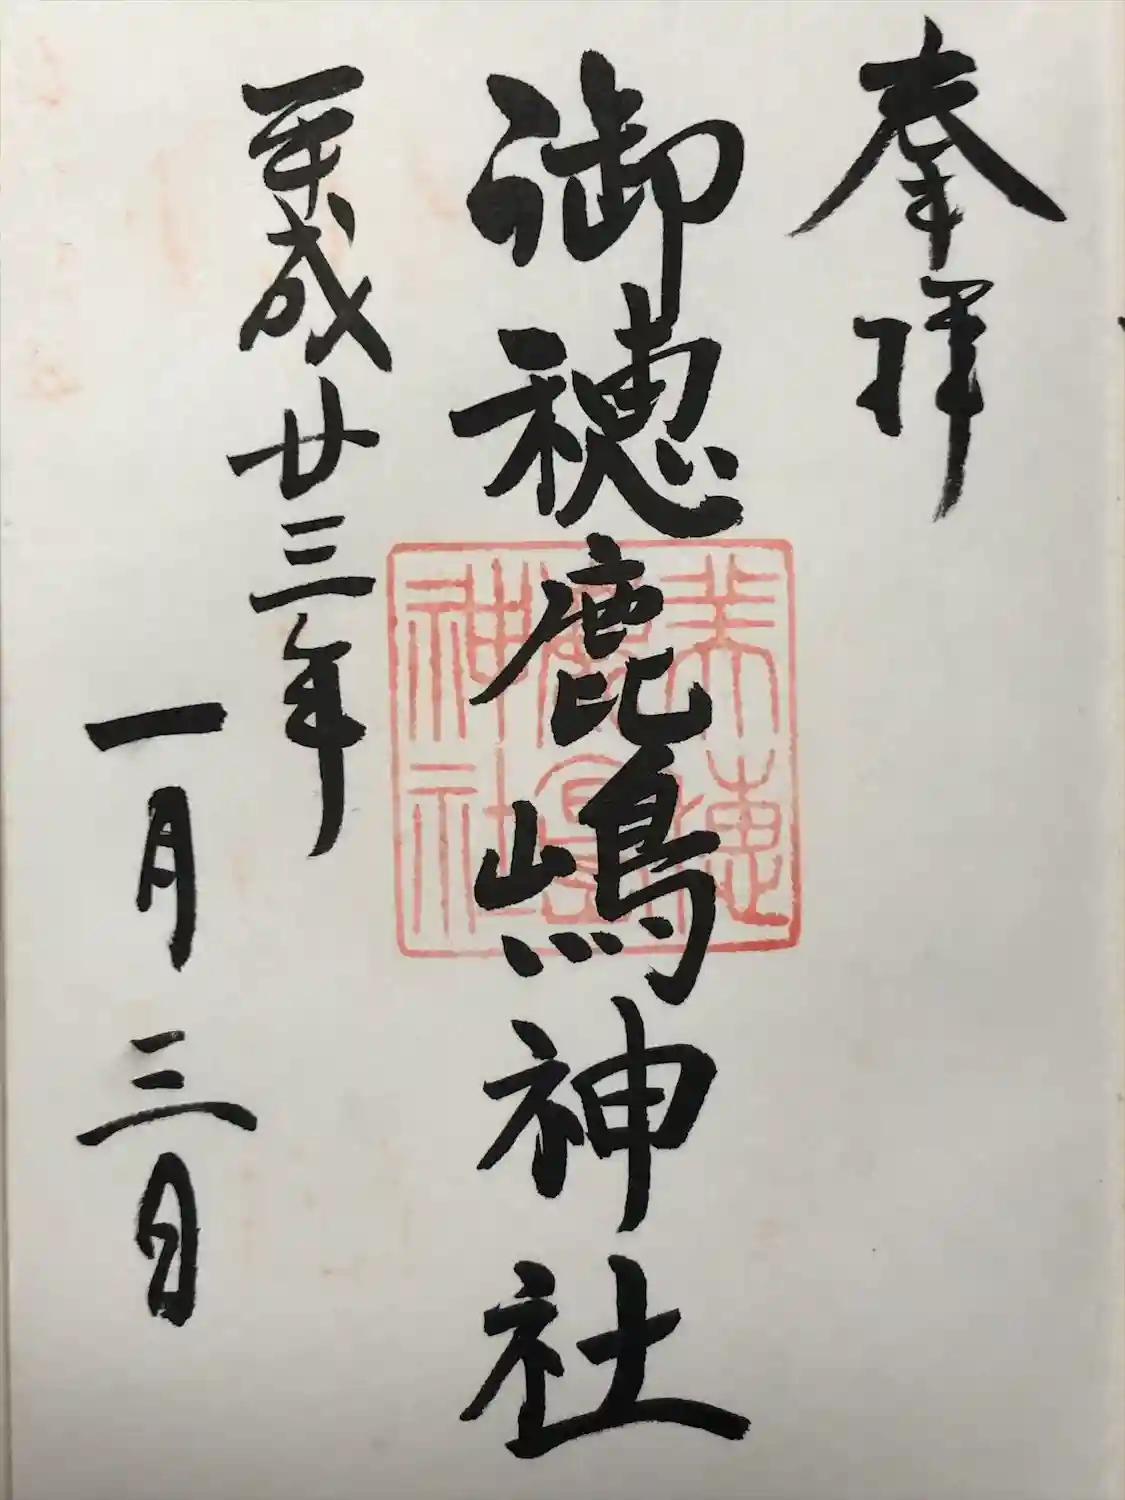 奉拝
御穂鹿嶋神社
平成廿三年
一月三日
美穂
鹿島
神社